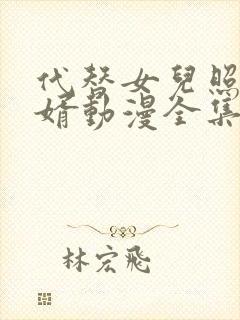 代替女兒照
婿動漫全集
林宏飛